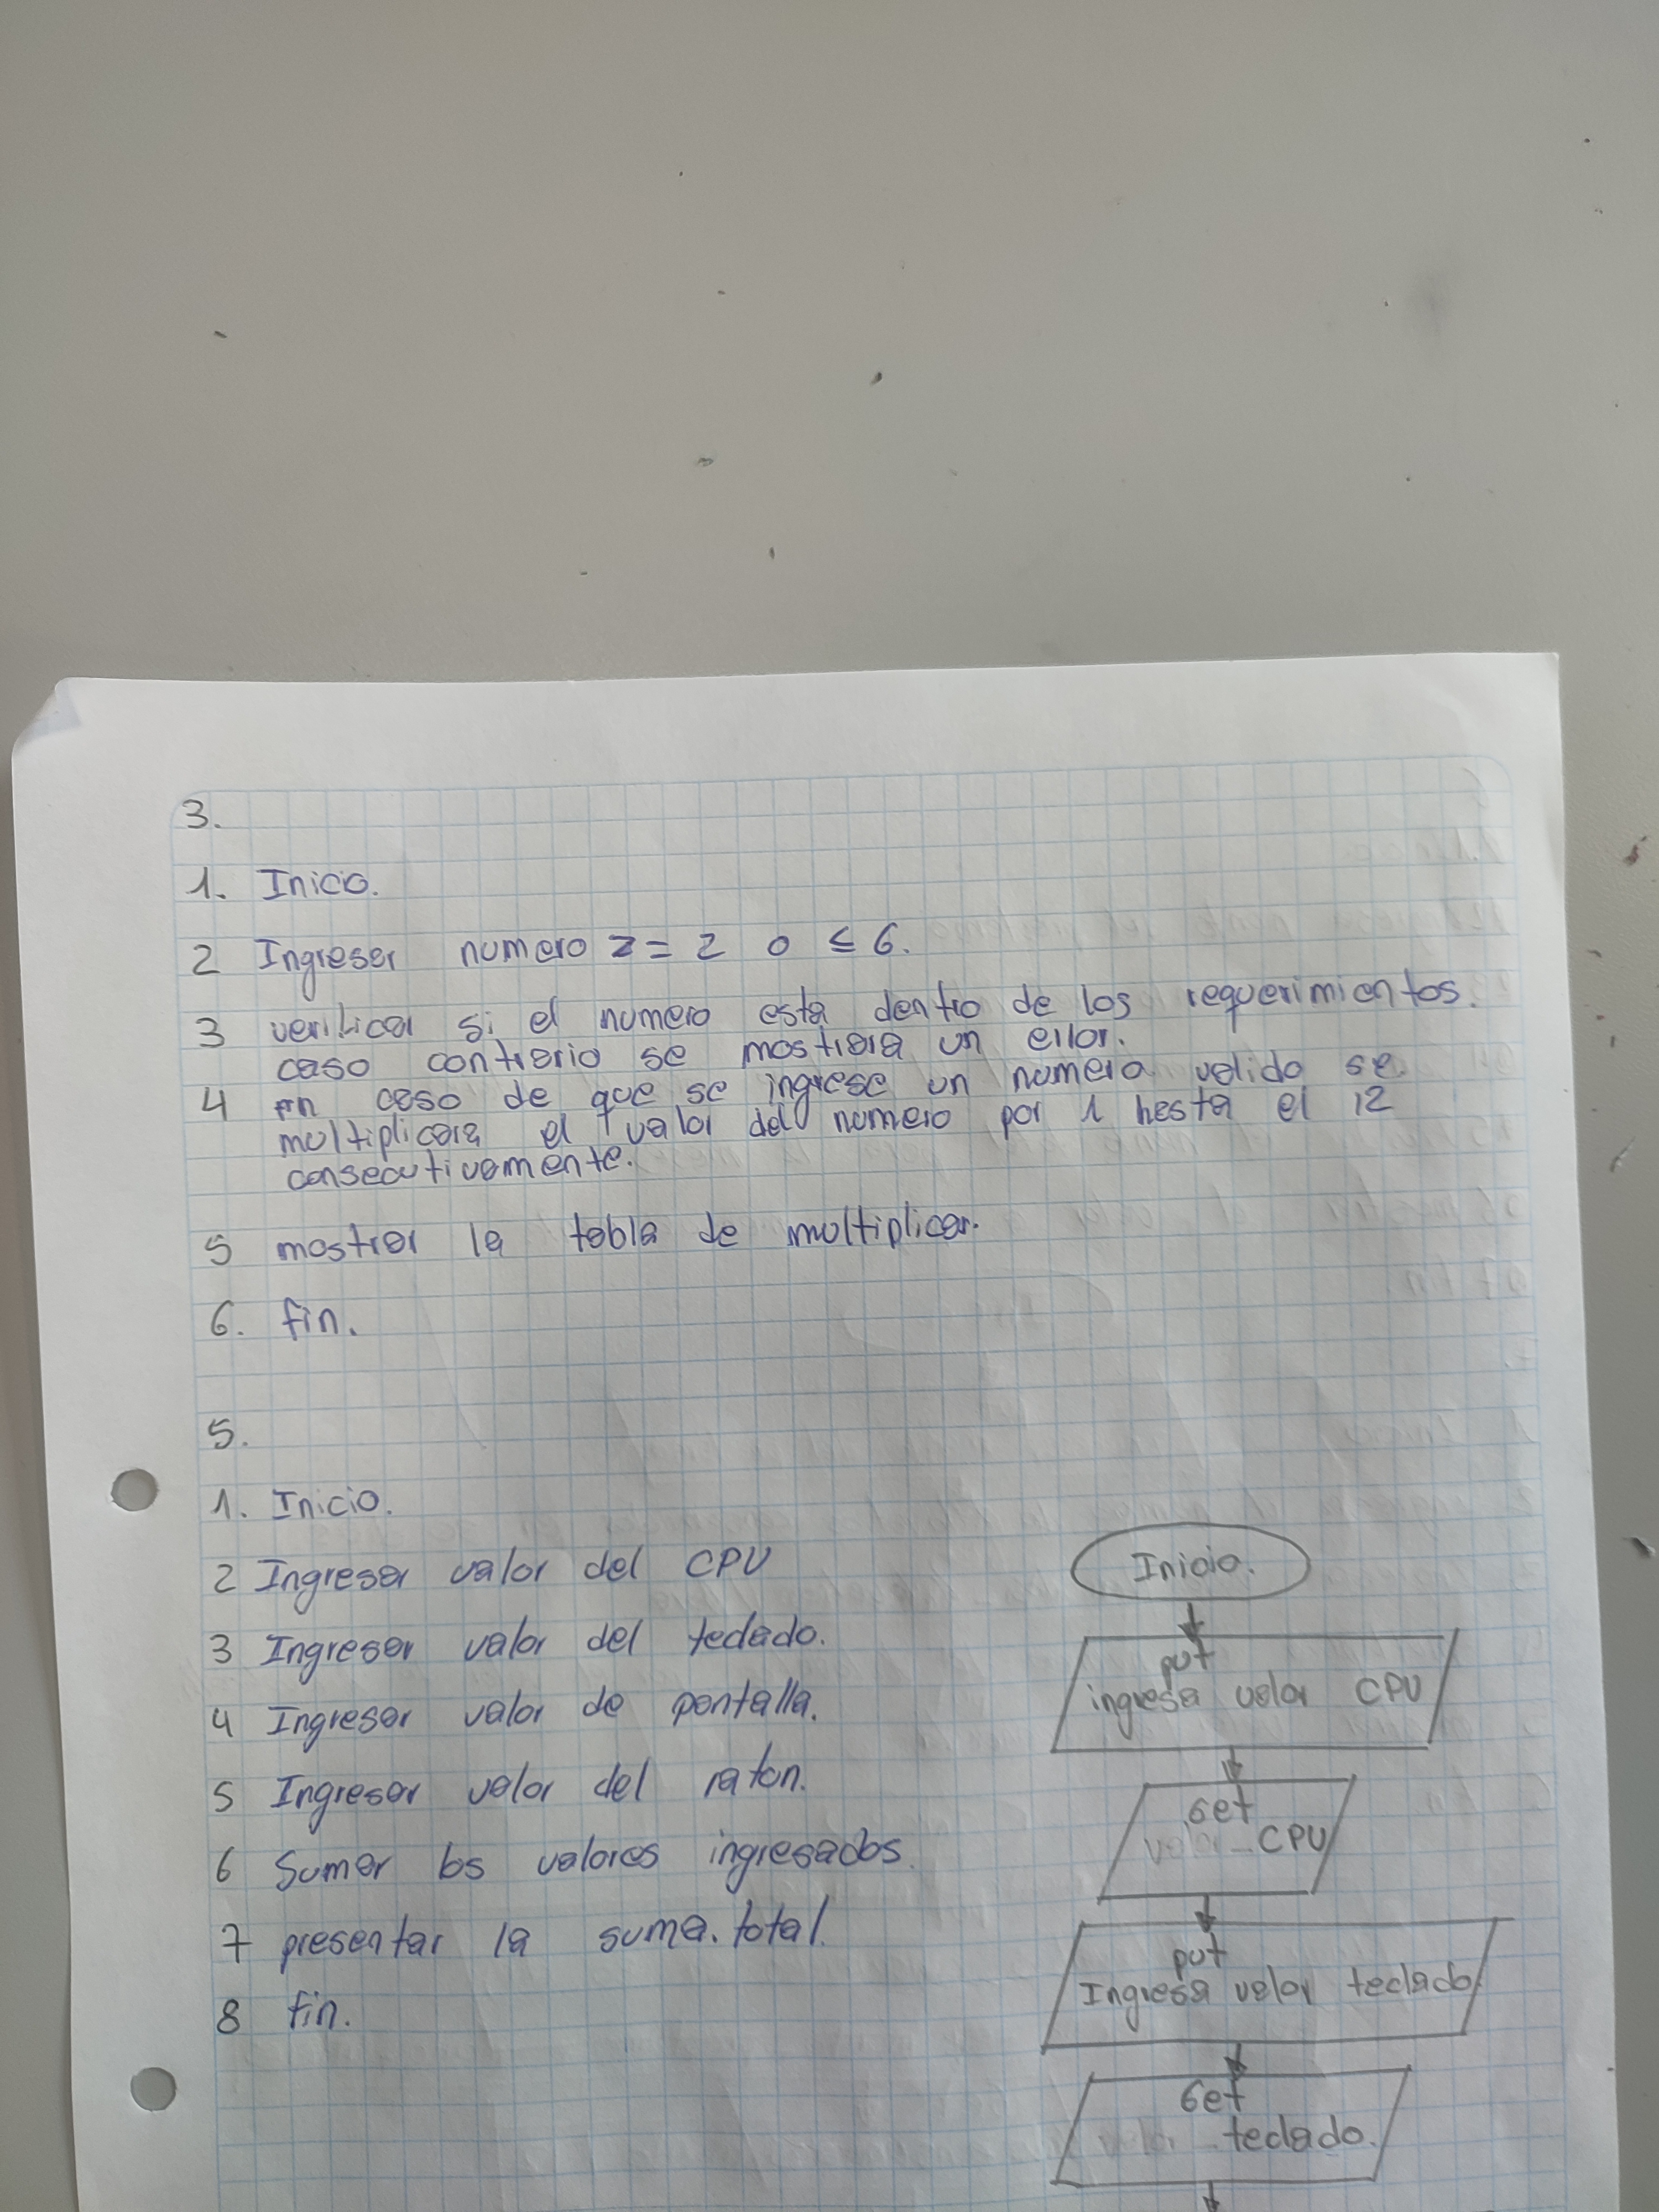 3.
1. Inicio.
2 Ingresar numero z = 2 o ≤ 6.
3 verificar si el numero esta dentro de los requerimientos.
caso contrario se mostrara un error.
4 en caso de que se ingrese un numero valido se
multiplicara el valor del numero por 1 hasta el 12
consecutivamente.
5 mostrar la tabla de multiplicar.
6. fin.
5.
1. Inicio.
2 Ingresar valor del CPU
3 Ingresar valor del teclado.
4 Ingresar valor de pantalla.
5 Ingresar valor del raton.
6 Sumar los valores ingresados.
7 presentar la suma. total.
8 fin.
Inicio.
put
ingresa valor CPU
Get
CPU
put
Ingresa valor teclado
Get
teclado.